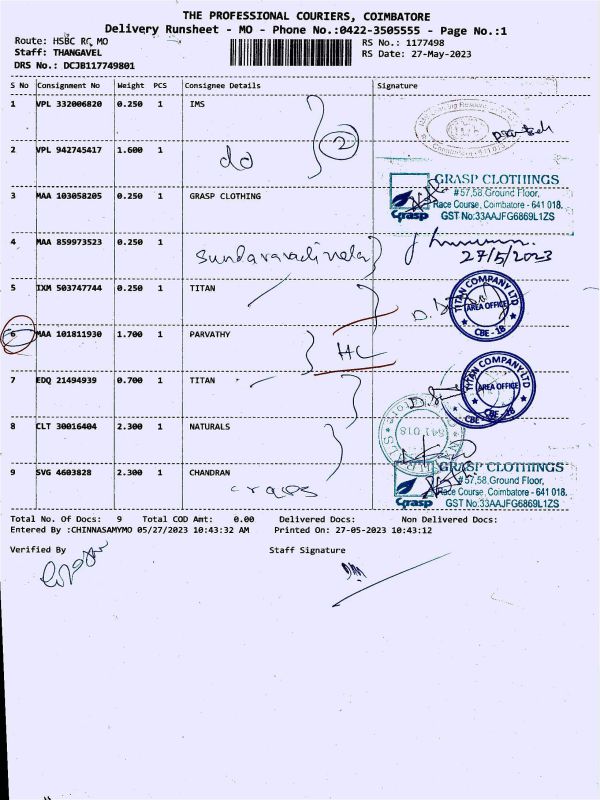 THE PROFESSIONAL COURIERS, COIMBATORE
Delivery Runsheet - MO - Phone No.:0422-3505555 - Page No.:1
Route: HSBC RC MO
RS No.: 1177498
Staff: THANGAVEL
RS Date: 27-May-2023
DRS No.: DCJB117749801
S No Consignment No Weight PCS Consignee Details Signature
1 VPL 332006820 0.250 1 IMS
2
2 VPL 942745417 1.600 1 do
GRASP CLOTHINGS
#57,58,Ground Floor,
3 MAA 103058205 0.250 1 GRASP CLOTHING
Race Course, Coimbatore - 641 018.
Grasp GST No:33AAJFG6869L1ZS
4 MAA 859973523 0.250 1
27/5/2023
5 IXM 503747744 0.250 1 TITAN
TITAN COMPANY LTD
AREA OFFICE
CBE - 18
6 MAA 101811930 1.700 1 PARVATHY
HC
7 EDQ 21494939 0.700 1 TITAN
TITAN COMPANY LTD
AREA OFFICE
CBE - 18
8 CLT 30016404 2.300 1 NATURALS
641 018
9 SVG 4603828 2.300 1 CHANDRAN
GRASP CLOTHINGS
#57,58,Ground Floor,
Race Course, Coimbatore - 641 018.
Grasp GST No:33AAJFG6869L1ZS
Total No. Of Docs: 9 Total COD Amt: 0.00 Delivered Docs: Non Delivered Docs:
Entered By :CHINNASAMYMO 05/27/2023 10:43:32 AM Printed On: 27-05-2023 10:43:12
Verified By Staff Signature